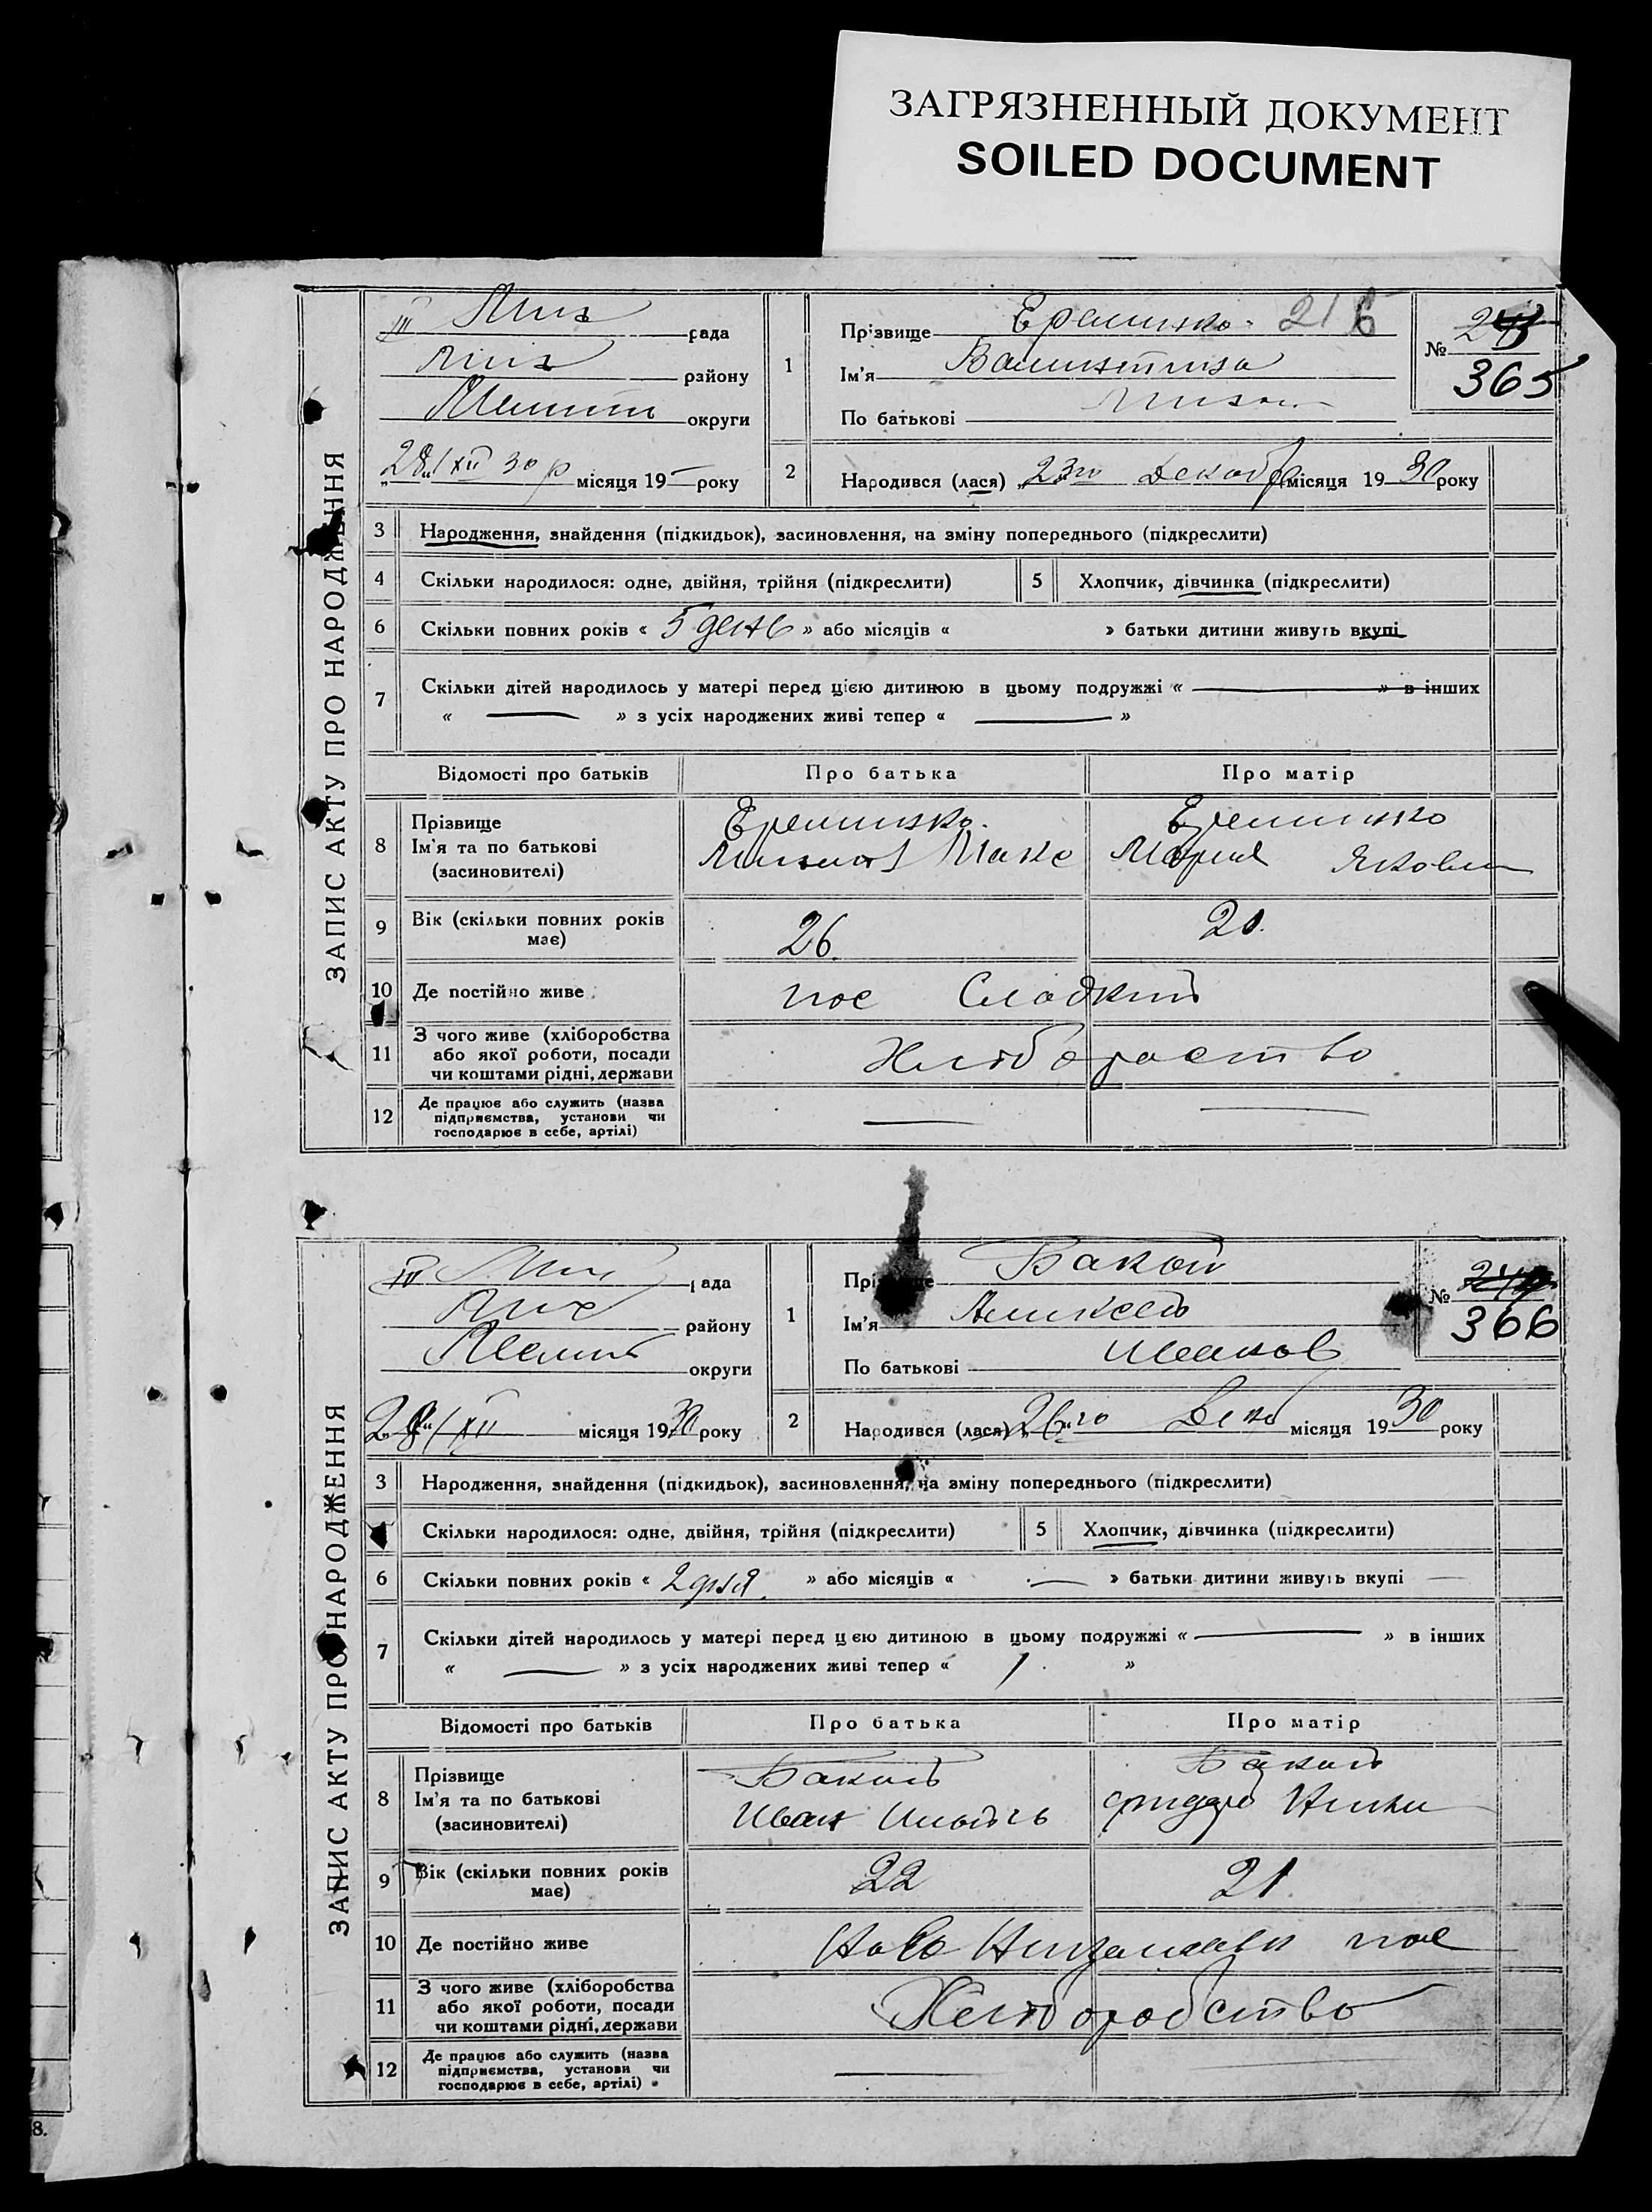 ЗАГРЯЗНЕННЫЙ ДОКУМЕНТ
SOILED DOCUMENT
ЗАПИС АКТУ ПРО НАРОДЖЕННЯ
рада
району
округи
28/XII 30 р місяця 19 року
1
Прізвище Еременко 216
Ім'я Валентина
По батькові
№
365
2
Народився (лася) „23го Декабр місяця 1930 року
3 Народження, знайдення (підкидьок), засиновлення, на зміну попереднього (підкреслити)
4 Скільки народилося: одне, двійня, трійня (підкреслити) 5 Хлопчик, дівчинка (підкреслити)
6 Скільки повних років « 5 день » або місяців « » батьки дитини живуть вкупі
7 Скільки дітей народилось у матері перед цією дитиною в цьому подружжі « — » в інших
« — » з усіх народжених живі тепер « — »
Відомості про батьків Про батька Про матір
8 Прізвище Ім'я та по батькові (засиновителі)
Еременко Еременко
Макс Мария Яковл
9 Вік (скільки повних років має) 26. 20.
10 Де постійно живе пос Сладкий
11 З чого живе (хліборобства або якої роботи, посади чи коштами рідні, держави
12 Де працює або служить (назва підприємства, установи чи господарює в себе, артілі) — —
ЗАПИС АКТУ ПРО НАРОДЖЕННЯ
рада
району
округи
28/XII місяця 1930 року
1
Прізвище Бакай
Ім'я Алексей
По батькові Иванов
№
366
2
Народився (лася) „26„го Декб місяця 1930 року
3 Народження, знайдення (підкидьок), засиновлення, на зміну попереднього (підкреслити)
4 Скільки народилося: одне, двійня, трійня (підкреслити) 5 Хлопчик, дівчинка (підкреслити)
6 Скільки повних років « 2 дня. » або місяців « — » батьки дитини живуть вкупі —
7 Скільки дітей народилось у матері перед цією дитиною в цьому подружжі « — » в інших
« — » з усіх народжених живі тепер « 1. »
Відомості про батьків Про батька Про матір
8 Прізвище Ім'я та по батькові (засиновителі)
Бакай Бакай
Иван Ильич
9 Вік (скільки повних років має) 22 21.
10 Де постійно живе Ново пос
11 З чого живе (хліборобства або якої роботи, посади чи коштами рідні, держави Хлеборобство
12 Де працює або служить (назва підприємства, установи чи господарює в себе, артілі) —
8.